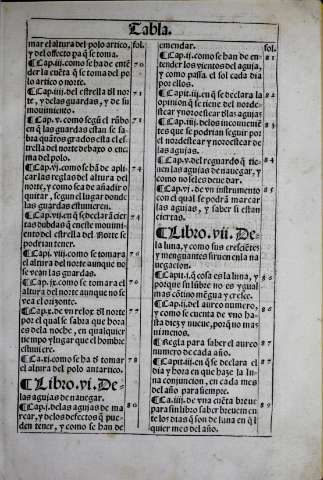 Tabla.
mar el altura del polo artico, fol.
y del effecto pa q̃ se toma.
¶Cap.iij.como se ha de enté 70
der la cuẽta q̃ se toma del po
lo artico o norte.
¶Cap.iiij.del estrella ðl nor 71
te, y delas guardas, y de su
mouimiento,
¶Cap.v. como segũ el rũbo 72
en q̃ las guardas estan se sa
bra quátos grados esta el es
trella del norte debaxo o enci
ma del polo.
¶Cap.vj.como se hã de apli 74
car las reglas del altura del
norte, y como sea de añadir o
quitar, segun el lugar donde
las guardas estuuieren.
¶Cap.vij.en q̃ se declarã cier 74
tas dubdas q̃ en este mouimi
ento del estrella del Norte se
podrian tener.
¶Capi. viij. como se tomara 76
el altura del norte aunque no
se vean las guardas.
¶Cap.ix.como se tomara el 76
altura del norte aunque no se
vea el orizonte.
¶Cap.x.de vn relox ðl norte 77
por el qual se sabra que hora
es dela noche, en qualquier
tiempo y lugar que el hombre
estuuiere.
¶Ca.xj.como se ha ð tomar 78
el altura del polo antartico.
¶Libro.vj.De
las agujas de nauegar.
¶Cap.j.delas agujas de ma 80
rear, y delos defectos q̃ pue
den tener, y como se han de
emendar. fol.
¶Cap.ij.como se han de en- 81
tender los vientos del aguja,
y como passa el sol cada dia
por ellos.
¶Capit.iij.en q̃ se declara la 82
opinion q̃ se tiene del nordes-
tear y noroestear ðlas agujas
¶Cap.iiij.delos inconueniẽ 82
tes que se podrian seguir por
el nordestear y noroestear de
las agujas.
¶Cap.v.del reguardo q̃ tie- 84
nen las agujas de nauegar, y
como no se les deue dar.
¶Cap.vj.de vn instrumento 85
con el qual se podrã marcar
las agujas, y saber si estan
ciertas.
¶Libro.vij.De
la luna, y como sus crescietes
y menguantes siruen en la na
uegacion.
¶Capit.j.q̃ cosa es la luna, y 86
porque su lũbre no es ygual
mas cõtino mẽgua y cresce.
¶Cap.ij.del aureo numero, 86
y como se cuenta de vno ha-
sta diez y nueue, porq̃ no mas
ni menos.
¶Regla para saber el aureo 87
numero de cada año.
¶Capit.iij.en q̃ se declara el 87
dia y hora en que haze la lu-
na conjuncion, en cada mes
del año para siempre.
¶Ca.iiij.de vna cuẽta breue 89
para sin libro saber breuemẽn
te los dias q̃ son de luna en q̃l
quier mes del año.